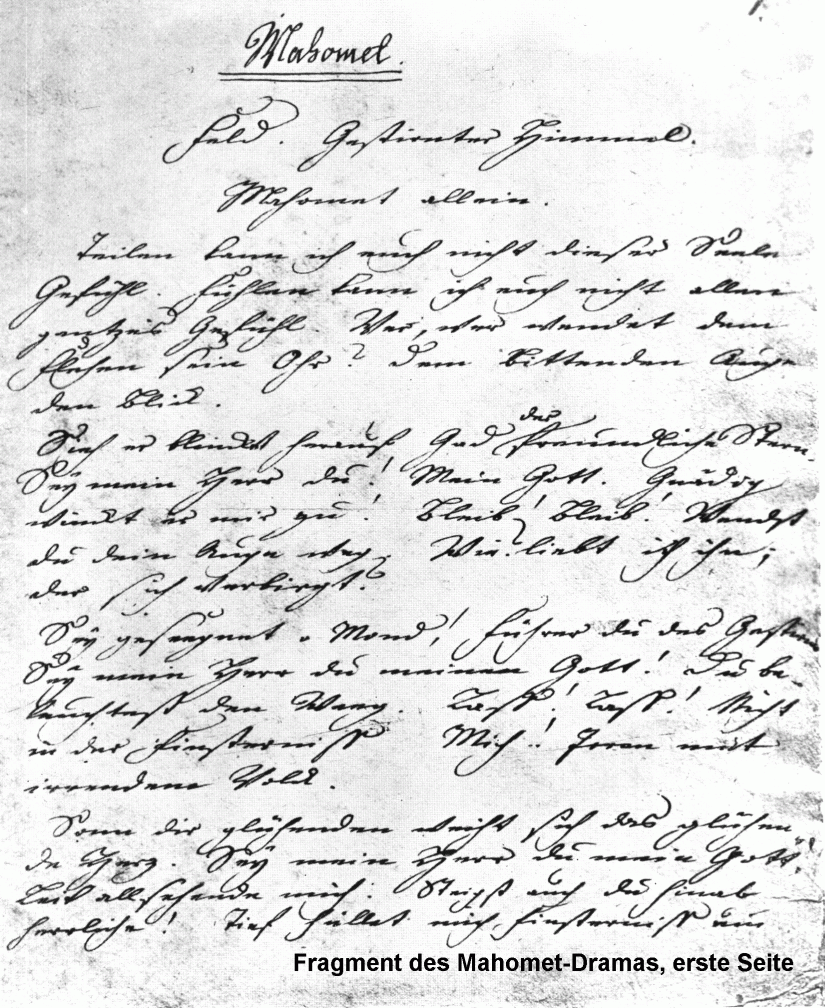 Mahomet.
Feld. Gestirnter Himmel.
Mahomet allein.
Teilen kann ich euch nicht dieser Seele
Gefühl. Fühlen kann ich euch nicht allen
gantzes Gefühl. Wer, wer wendet dem
Flehen sein Ohr? Dem bittenden Auge
den Blick.
der
Sieh er blinket herauf Gad freundliche Stern.
Sey mein Herr du! Mein Gott. Gnädig
winckt er mir zu! Bleib! Bleib! Wendst
du dein Auge weg. Wie! liebt ich ihn,
der sich verbirgt?
Sey gesegnet o Mond! Führer du des Gestirns
Sey mein Herr du meinen Gott! Du be-
leuchtest den Weeg. Lass! Lass! Nicht
in der Finsterniss Mich!! Irren mit
irrendem Volck.
Sonn dir glühenden weiht sich das glühen
de Herz. Sey mein Herr du mein Gott!
Leit allsehende mich. Steigst auch du hinab
herrliche! Tief hüllet mich Finsterniss ein
Fragment des Mahomet-Dramas, erste Seite